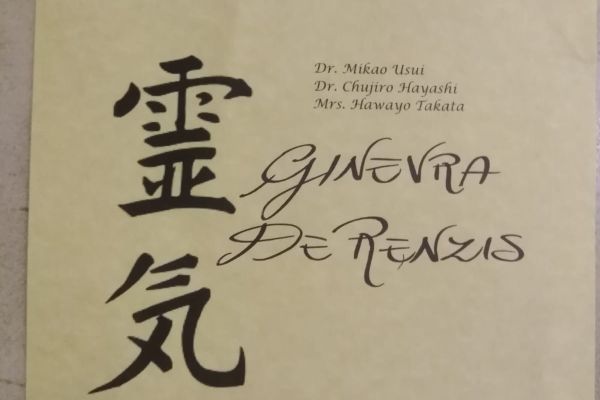 霊気
Dr. Mikao Usui
Dr. Chujiro Hayashi
Mrs. Hawayo Takata
GINEVRA
DE RENZIS